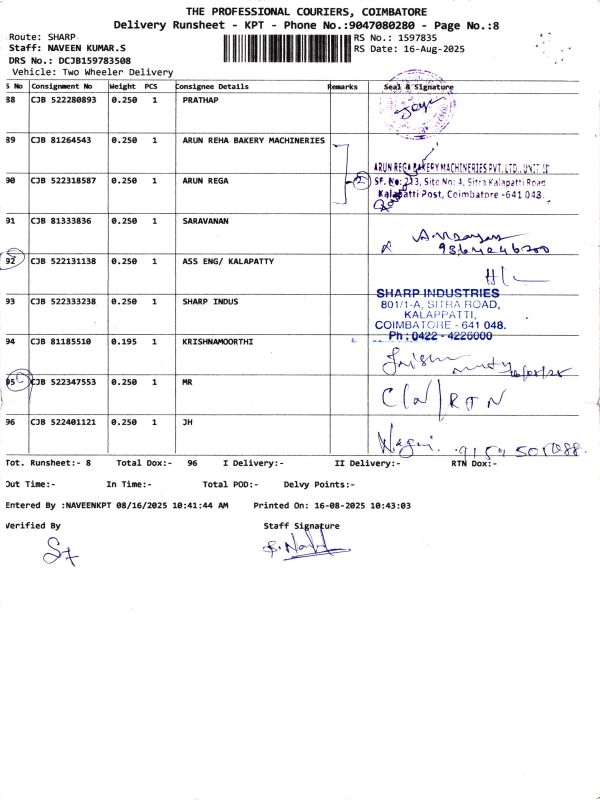 THE PROFESSIONAL COURIERS, COIMBATORE
Delivery Runsheet - KPT - Phone No.:9047080280 - Page No.:8
Route: SHARP
RS No.: 1597835
Staff: NAVEEN KUMAR.S
RS Date: 16-Aug-2025
DRS No.: DCJB159783508
Vehicle: Two Wheeler Delivery
S No Consignment No Weight PCS Consignee Details Remarks Seal & Signature
88 CJB 522280893 0.250 1 PRATHAP
89 CJB 81264543 0.250 1 ARUN REHA BAKERY MACHINERIES
ARUN REGA BAKERY MACHINERIES PVT. LTD., UNIT II
90 CJB 522318587 0.250 1 ARUN REGA 2 SF. No: 213, Site No: 4, Sitra Kalapatti Road
Kalapatti Post, Coimbatore -641 048.
91 CJB 81333836 0.250 1 SARAVANAN
92 CJB 522131138 0.250 1 ASS ENG/ KALAPATTY H/L
SHARP INDUSTRIES
93 CJB 522333238 0.250 1 SHARP INDUS 801/1-A, SITRA ROAD,
KALAPPATTI,
COIMBATORE - 641 048.
Ph : 0422 - 4226000
94 CJB 81185510 0.195 1 KRISHNAMOORTHI
95 CJB 522347553 0.250 1 MR C/N/RTN
96 CJB 522401121 0.250 1 JH
Tot. Runsheet:- 8 Total Dox:- 96 I Delivery:- II Delivery:- RTN Dox:-
Out Time:- In Time:- Total POD:- Delvy Points:-
Entered By :NAVEENKPT 08/16/2025 10:41:44 AM Printed On: 16-08-2025 10:43:03
Verified By Staff Signature